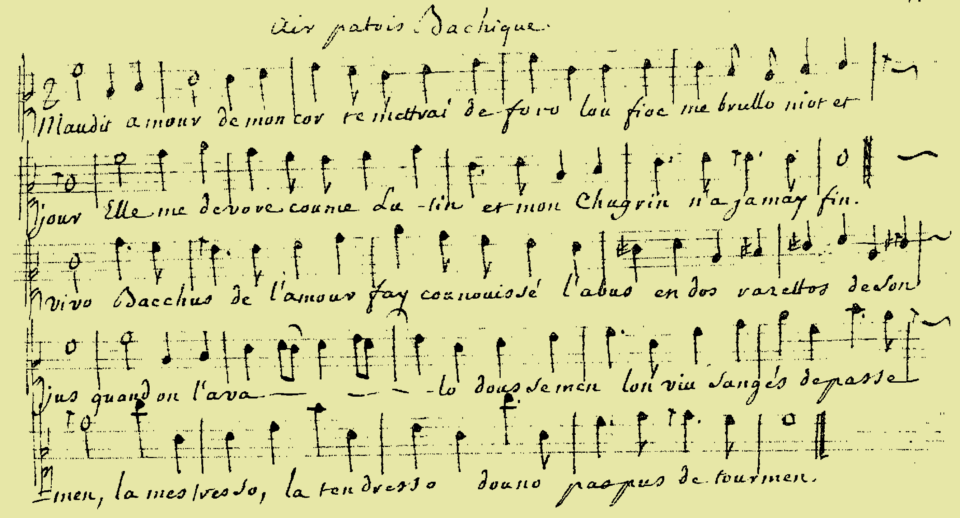 Air patois Bachique.
Maudit amour de mon cor te mettrai de foro lou fioc me brullo niot et
jour Elle me devore coume Lu-tin et mon Chagrin n'a jamay fin.
vivo Bacchus de l'amour fay counouissé l'abus en dos razettos de son
jus quand on l'ava — — — -lo doussemen lon viu sangés depasse
men, la mestresso, la tendresso douno paspus de tourmen.